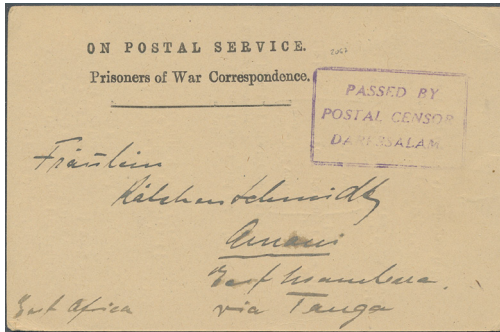 ON POSTAL SERVICE.
Prisoners of War Correspondence.
PASSED BY
POSTAL CENSOR
DARESSALAM
Fräulein
Käthchen Schmidt
Amani
East Usambara.
via Tanga
East Africa